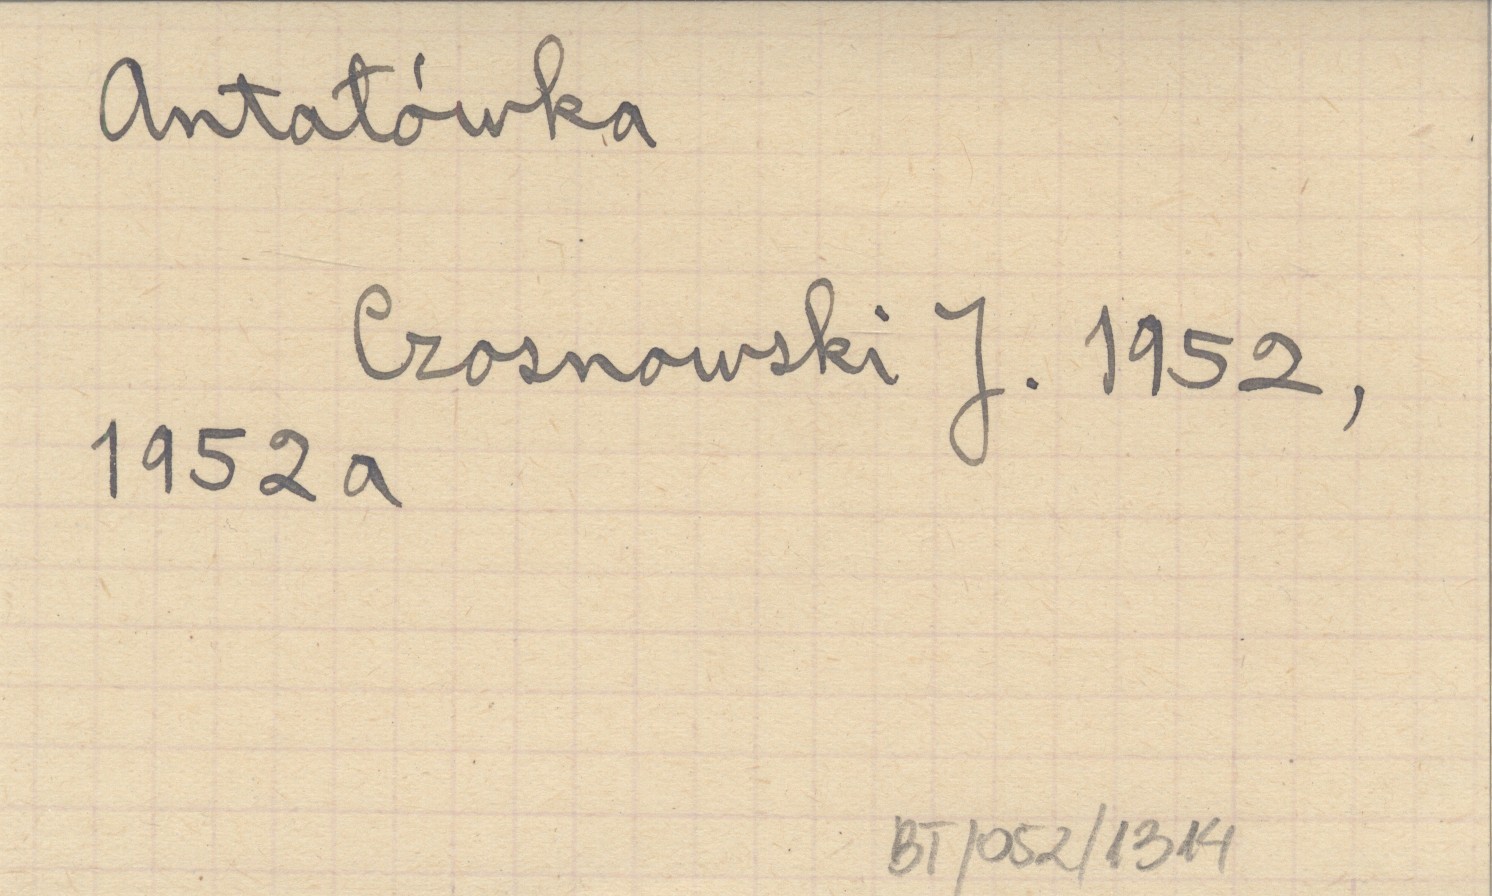 Antałówka
Czosnowski J. 1952,
1952a
BT/052/1314